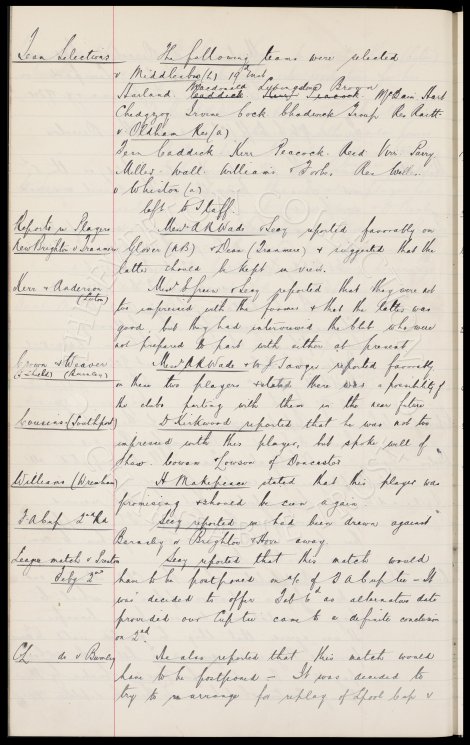 Team Selections The following teams were selected
v Middlesbro (L) 19th inst
Macdonald Livingstone Brown
Harland Caddick Kerr Peacock McBain Hart
Chedgzoy Irvine Cock Chadwick Troup Res Raitt
v Oldham Res (a)
Fern Caddick Kerr Peacock Reed Virr Parry
Miller Wall Williams & Forbes Res
v Whiston (a)
left to Staff.
Reports re Players Messrs A R Wade & Secy reported favorably on
New Brighton v Tranmere Glover (N B) & Dean (Tranmere) & suggested that the
latter should be kept in view.
Kerr & Anderson Messrs Green & Secy reported that they were not
(Luton) too impressed with the former & that the latter was
good, but they had interviewed the Club who were
not prepared to part with either at present
Crown & Weaver Messrs A R Wade & W J Sawyer reported favorably
(S Shields) (Burnley) on these two players & stated there was a possibility of
the clubs parting with them in the near future
Couseans (Southport) D Kirkwood reported that he was not too
impressed with this player, but spoke well of
Shaw Cowan & Lowson of Doncaster
Williams (Wrexham) H Makepeace stated that this player was
promising & should be seen again.
F A Cup 2nd Rd Secy reported we had been drawn against
Barnsley or Brighton & Hove away.
League match v Preston Secy reported that this match would
Feby 2nd have to be postponed on a/c of F A Cup tie — It
was decided to offer Feb 6th as alternative date
provided our Cup tie came to a definite conclusion
on 2nd
CL do v Burnley He also reported that this match would
have to be postponed — It was decided to
try to re arrange for replay of Lpool Cup v